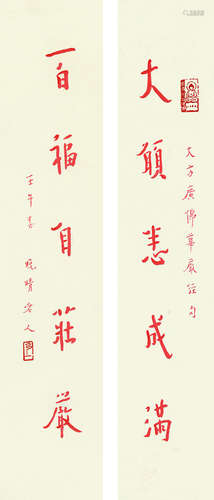 大願悉成滿
大方廣佛華嚴經句
百福自莊嚴
壬午春
晚晴老人